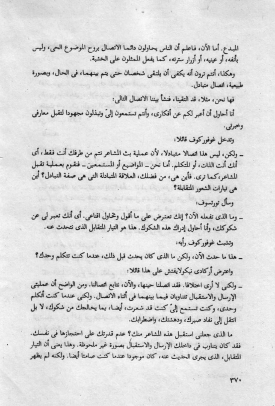 المبدع. أما الآن، فاعلم أن الناس يحاولون دائما الاتصال بروح الموضوع الحي، وليس
بأنفه، أو عينيه، أو أزرار سترته، كما يفعل الممثلون على الخشبة.
وهكذا، أنتم ترون أنه يكفي أن يلتقى شخصان حتى يتم بينهما، في الحال، وبصورة
طبيعية، اتصال متبادل.
فها نحن، مثلا، قد التقينا، فنشأ بيننا الاتصال التالي:
أنا أحاول أن أعبر لكم عن أفكاري، وأنتم تستمعون إلي وتبذلون مجهودا لتقبل معارفي
وخبراتي.
وتدخل غوفوركوف قائلا:
ـ ولكن، ليس هذا اتصالا متبادلا، لأن عملية بث المشاعر تتم من طرفك أنت فقط، أي
أنك أنت الذات، أو المتكلم. أما نحن ـ المواضيع أو المستمعين ـ فنقوم بعملية تقبل
المشاعر، كما ترى. فأين هي، من فضلك، العلاقة المتبادلة التي هي صفة التبادل؟ أين
هي تيارات الشعور المتقابلة؟
وسأل تورتسوف:
ـ وما الذي تفعله الآن؟ إنك تعترض على ما أقول وتحاول اقناعي. أي أنك تعبر لي عن
شكوكك، وأنا أحاول إدراك هذه الشكوك. هذا هو التيار المتقابل الذي تتحدث عنه.
وتشبث غوفوركوف برأيه:
ـ هذا ما حدث الآن، ولكن ما الذي كان يحدث قبل ذلك، عندما كنت تتكلم وحدك؟
واعترض أركادي نيكولايفتش على هذا قائلا:
ـ ولكني لا أرى اختلافا. فقد اتصلنا حينها، والآن، نتابع اتصالنا. ومن الواضح أن عمليتي
الإرسال والاستقبال تتناوبان فيما بينهما في أثناء الاتصال. ولكني عندما كنت أتكلم
وحدي، وكنت تستمع إلي كنت قد شعرت، أيضا، بما يخالجك من شكوك، بل
انتقل إلي نفاد صبرك، ودهشتك، واضطرابك.
ما الذي جعلني استقبل هذه المشاعر منك؟ عدم قدرتك على احتجازها في نفسك.
فقد كان يتناوب في داخلك الإرسال والاستقبال بصورة غير ملحوظة. وهذا يعني أن التيار
المتقابل، الذي يجري الحديث عنه، كان موجودا عندما كنت صامتا أيضا. ولكنه لم يظهر
٣٧٠